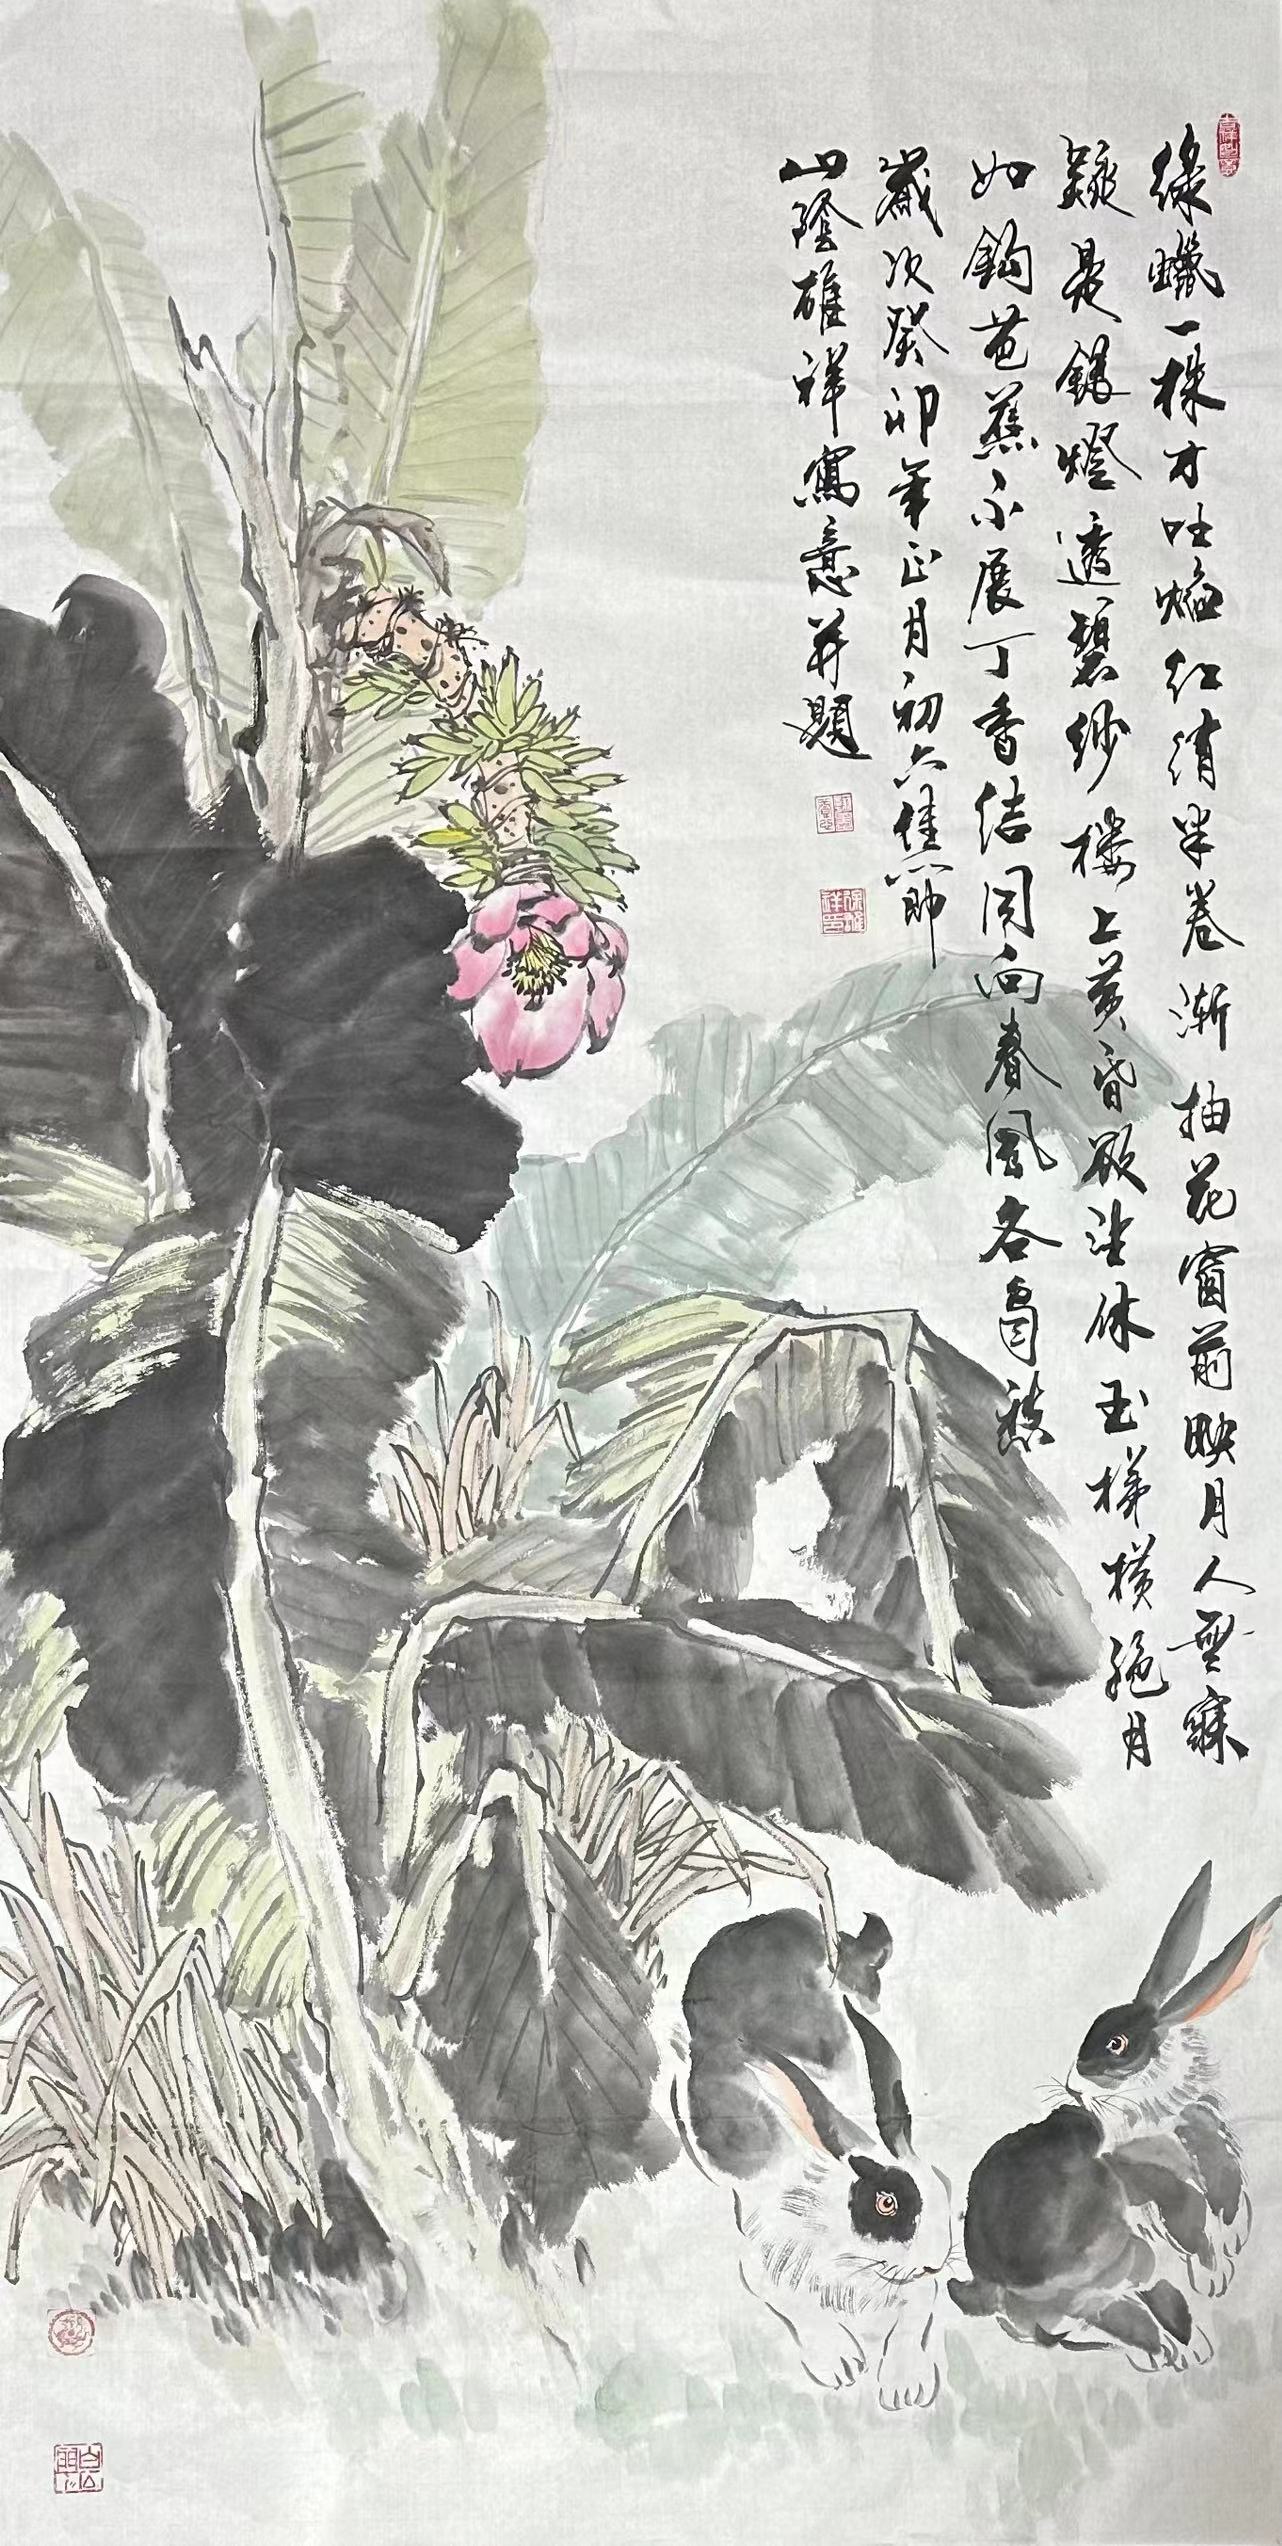 綠蠟一株才吐焰紅綃半卷漸抽花窗前映月人無寐
疑是銀燈透碧紗樓上黃昏欲望休玉梯橫絕月
如鈎芭蕉不展丁香結同向春風各自愁
歲次癸卯年正月初六佳節
山陰雄祥寫意并題